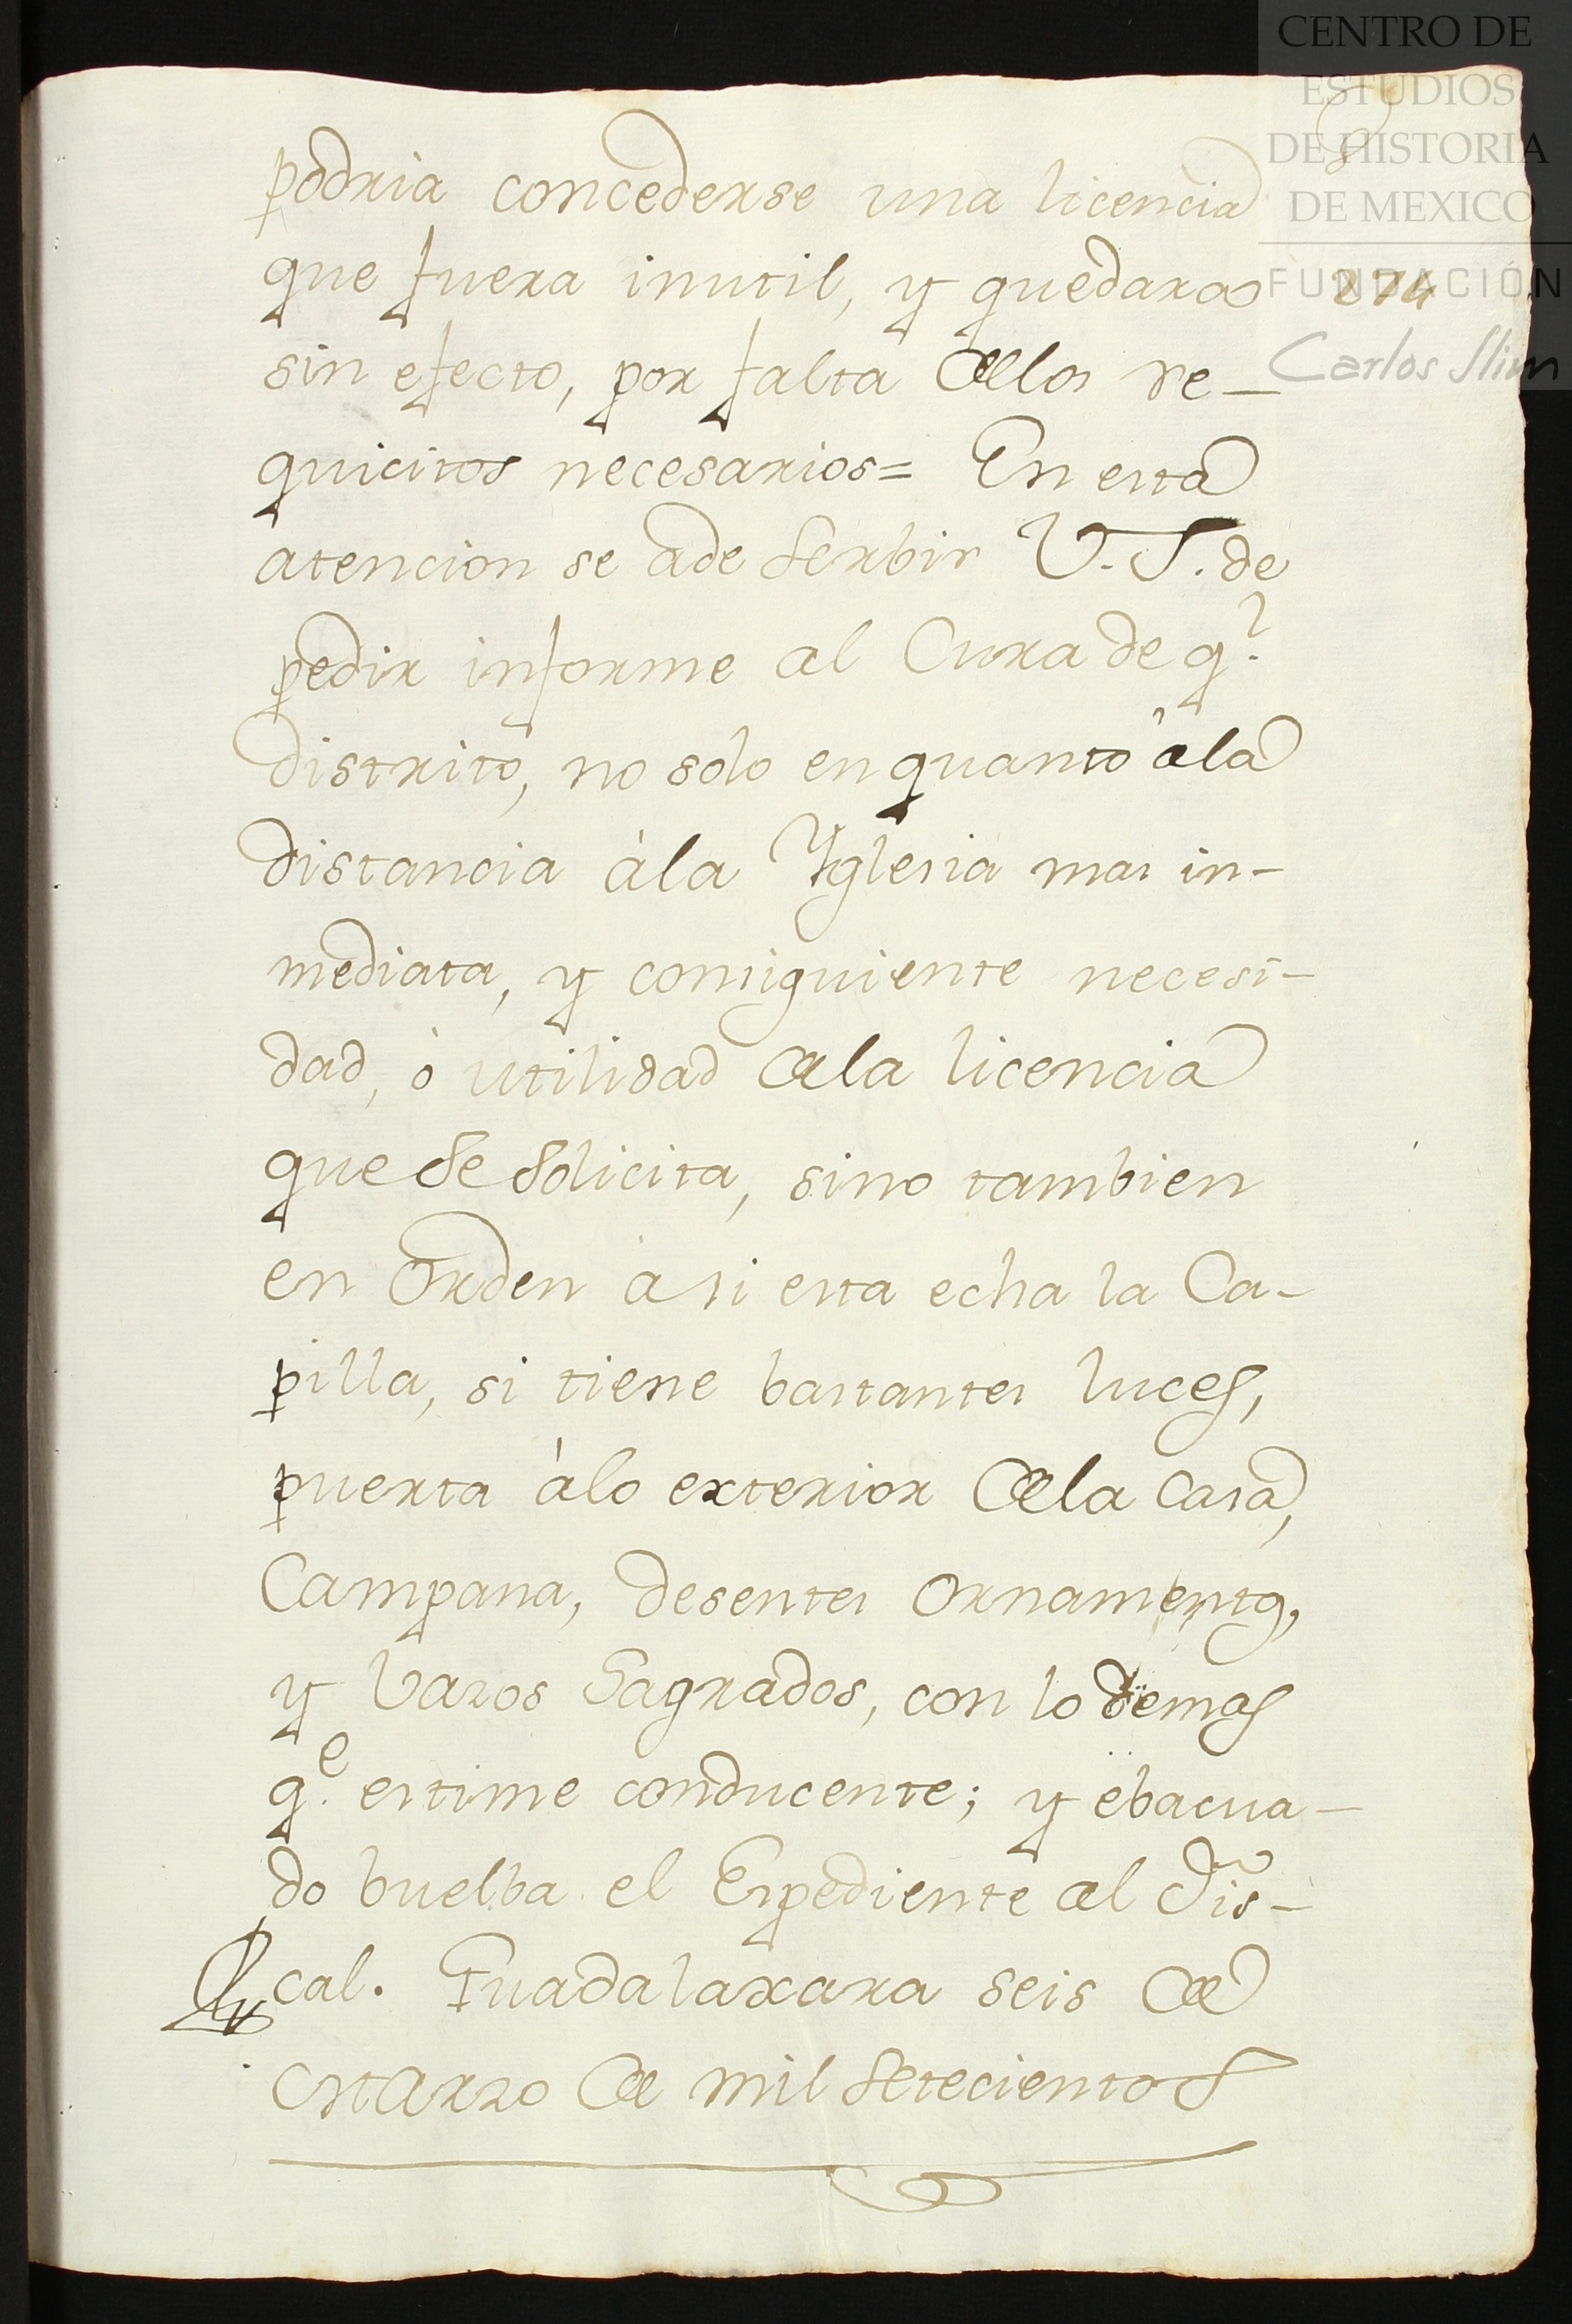 CENTRO DE
ESTUDIOS
DE HISTORIA
DE MEXICO
FUNDACIÓN
Carlos Slim
8
274
podria concederse una licencia
que fuera inutil, y quedara
sin efecto, por falta de los re-
quicitos necesarios= En esta
atencion se ade serbir V.S. de
pedir informe al Cura de
distrito, no solo en quanto âla
distancia àla Yglesia mas in-
mediata, y consiguiente necesi-
dad, ò utilidad de la licencia
que se solicita, sino tambien
en Orden à si esta echa la Ca-
pilla, si tiene bastantes luces,
puerta àlo exterior de la Casa,
Campana, desentes Ornamentos,
y Vasos Sagrados, con lo demas
q.e estime conducente; y ebacua-
do buelba el Espediente al Fis-
cal. Guadalaxara seis de
Marzo de mil setecientos